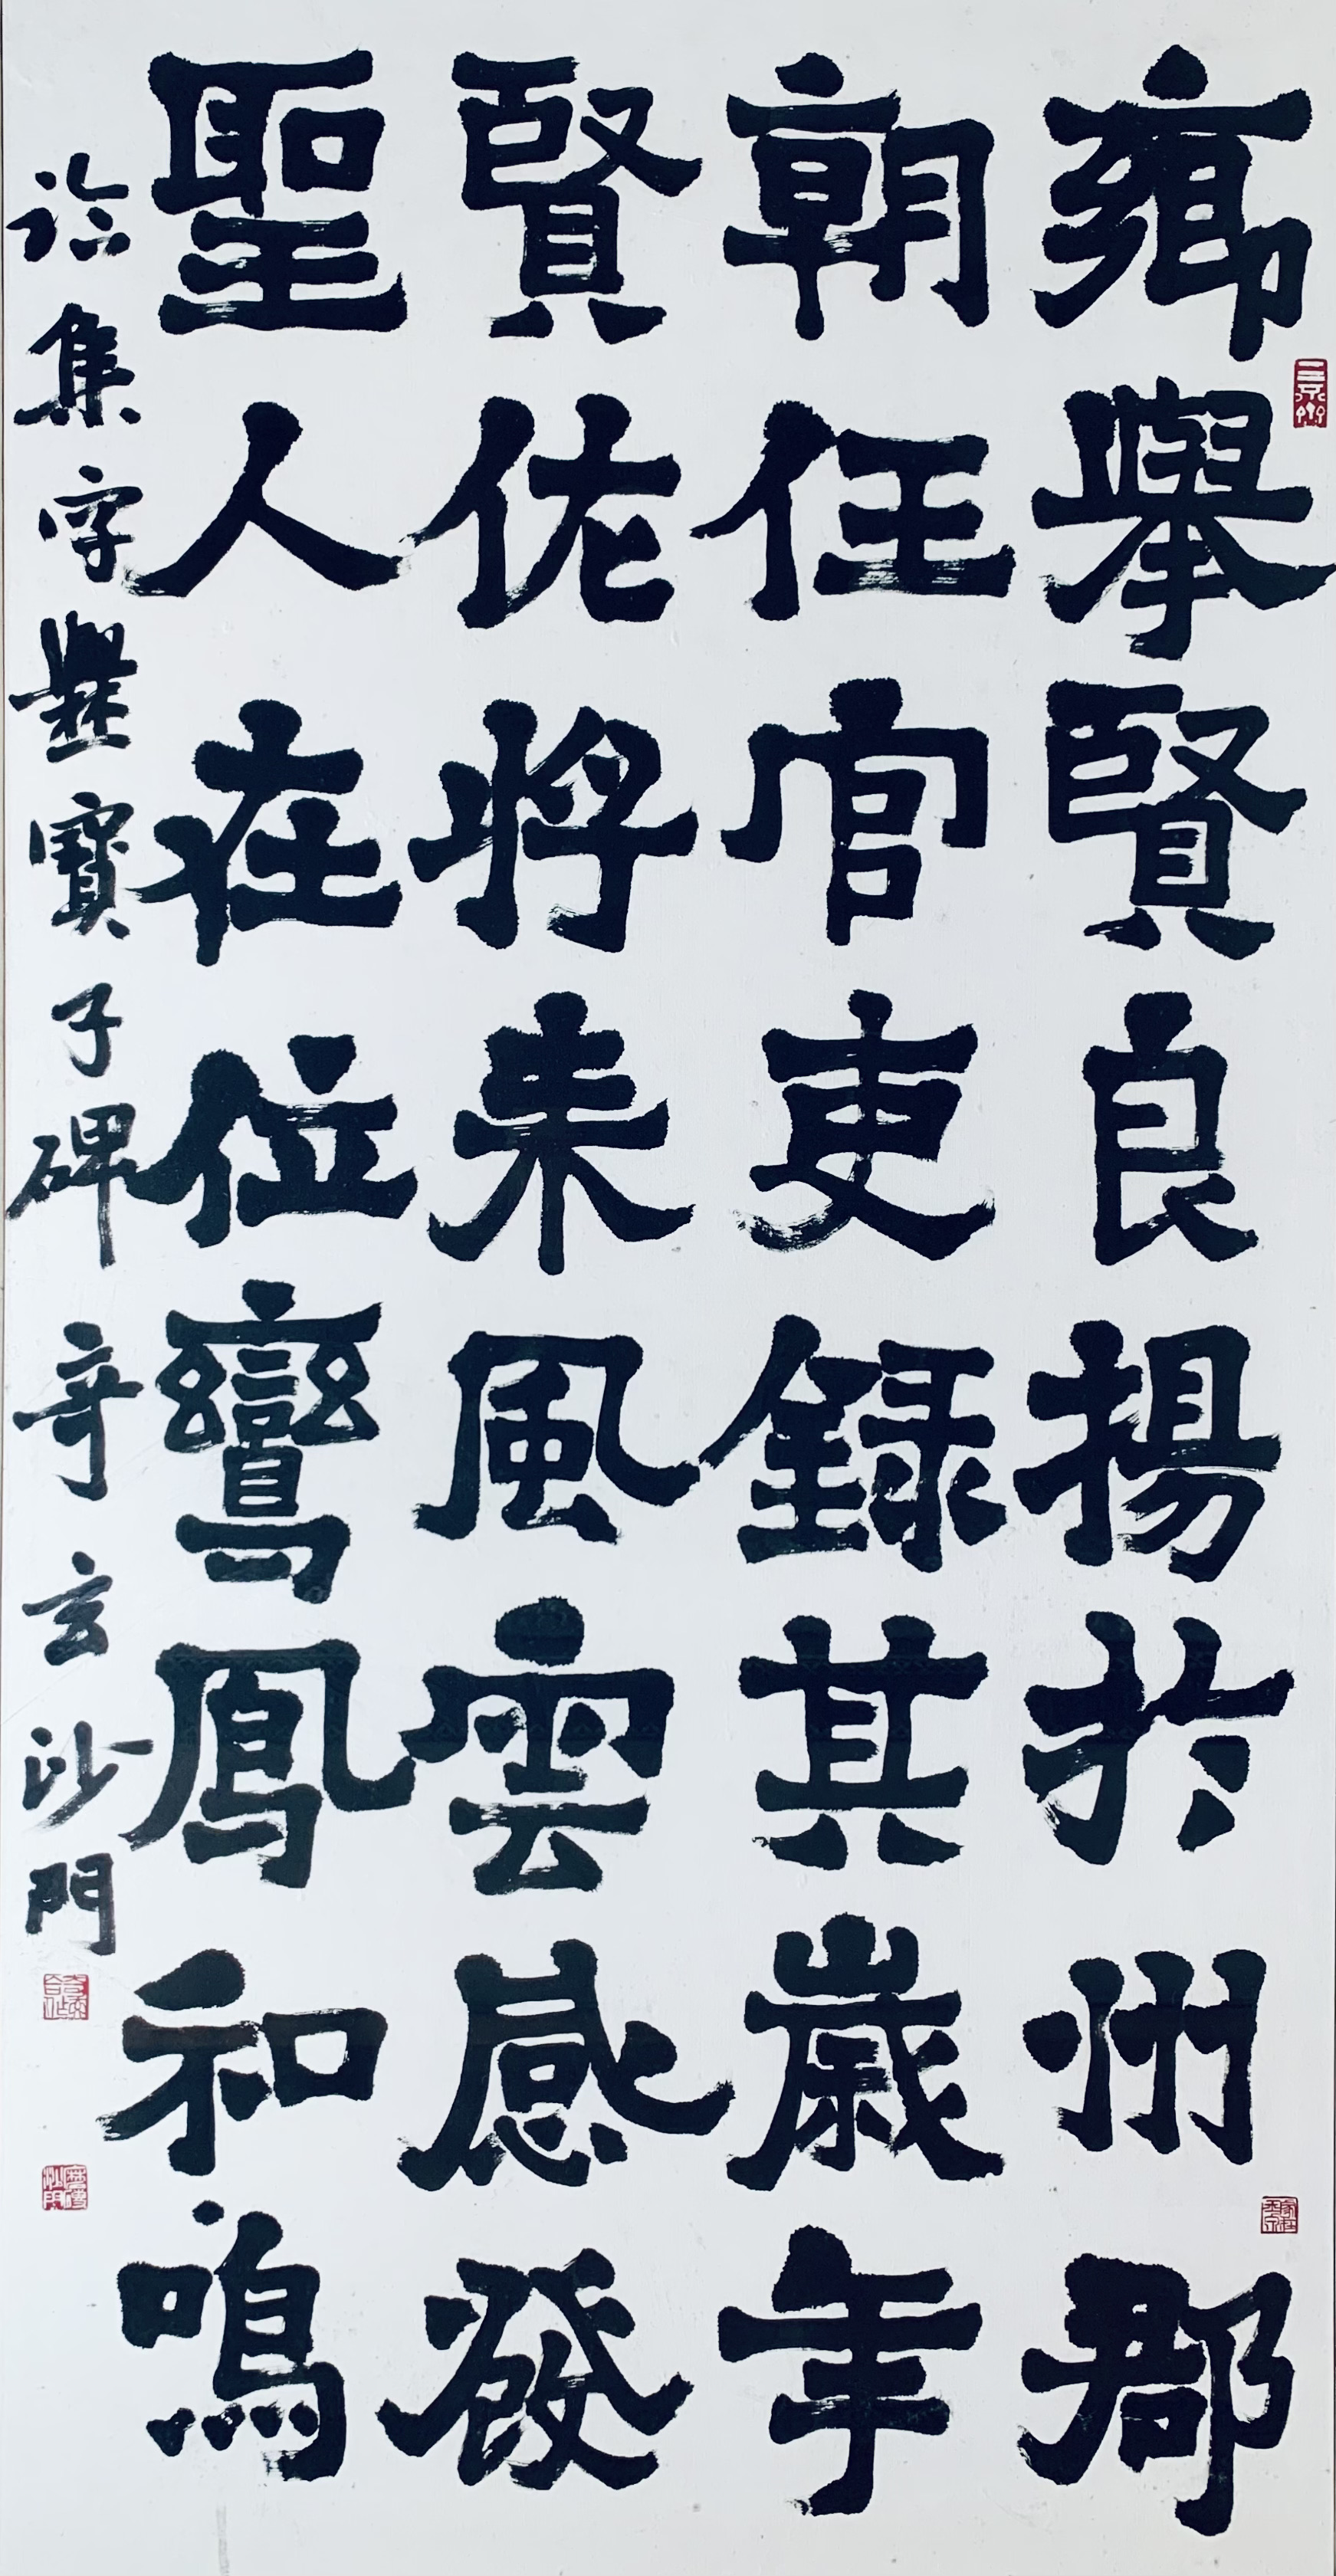 鄉舉賢良揚於州郡
朝任官吏録其歲年
賢佐將来風雲感發
聖人在位鸞鳳和鳴
臨集字爨寶子碑 奇玄沙門